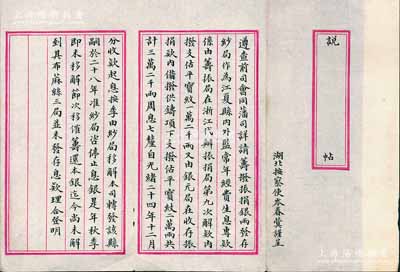 說
帖
湖北按察使岑春蓂謹呈
遵查前司會同藩司詳請籌振捐銀兩發存
紗局作為江夏縣內外監常年經費生息專款
係由籌振局在浙江代辦振捐局第九次解款內
撥支估平寶紋一萬二千兩又由銀元局在收存振
捐款內備撥供鑄項下支撥估平寶紋二萬兩共
計三萬二千兩周息七釐自光緒二十四年十二月
分收款起息按季由紗局移解本司轉發該縣
嗣於二十八年准紗局咨停止息銀是年秋季
即未移解節次移催籌還本銀迄今尚未解
到其布麻絲三局並未發存息款理合登明